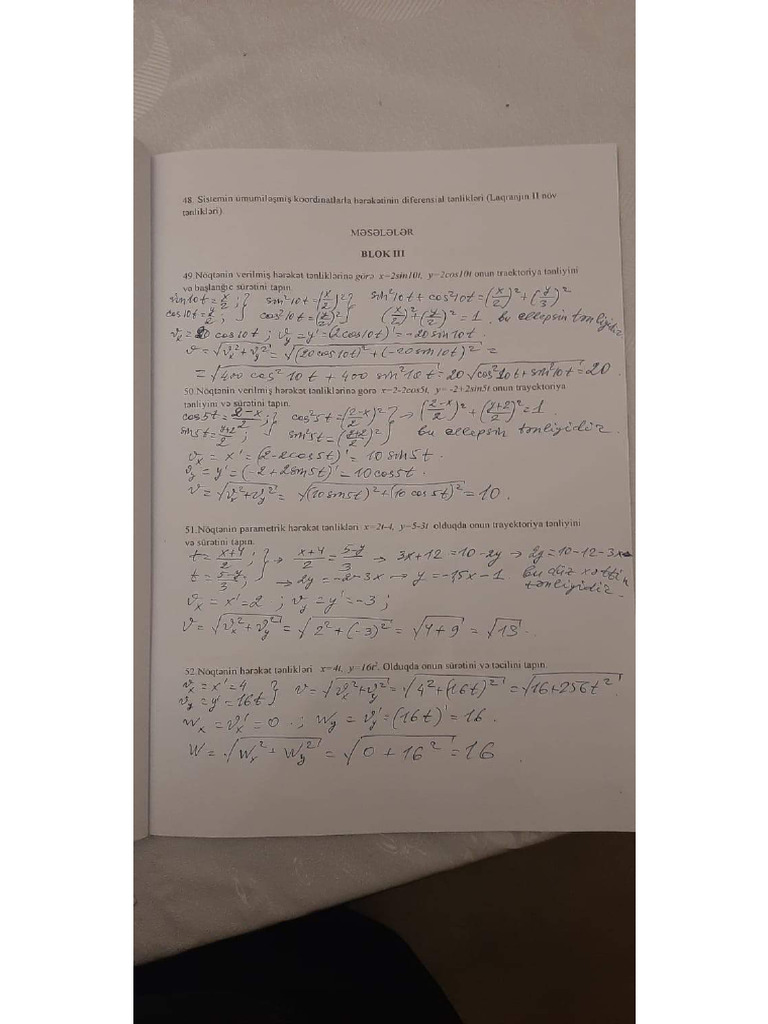 48. Sistemin ümumiləşmiş koordinatlarla hərəkətinin diferensial tənlikləri (Laqranjın II növ
tənlikləri)
MƏSƏLƏLƏR
BLOK III
49.Nöqtənin verilmiş hərəkət tənliklərinə görə x=2sin10t, y=2cos10t onun traektoriya tənliyini
və başlanğıc sürətini tapın.
sin10t = x/2 ; } sin²10t = (x/2)² } sin²10t + cos²10t = (x/2)² + (y/3)²
cos10t = y/2 ; } cos²10t = (y/2)² } (x/2)² + (y/2)² = 1. bu ellepsin tənliyidir
vx = 20 cos10t ; vy = y' = (2cos10t)' = -20sin10t.
v = √vx² + vy² = √(20cos10t)² + (-20sin10t)² =
= √400 cos²10t + 400 sin²10t = 20√cos²10t + sin²10t = 20.
50.Nöqtənin verilmiş hərəkət tənliklərinə görə x=2-2cos5t, y= -2+2sin5t onun trayektoriya
tənliyini və sürətini tapın.
cos5t = 2-x/2 ; } cos²5t = (2-x/2)² } → (2-x/2)² + (y+2/2)² = 1
sin5t = y+2/2 ; } sin²5t = (y+2/2)² } bu ellepsin tənliyidir.
vx = x' = (2-2cos5t)' = 10sin5t.
vy = y' = (-2+2sin5t)' = 10cos5t.
v = √vx² + vy² = √(10sin5t)² + (10cos5t)² = 10.
51.Nöqtənin parametrik hərəkət tənlikləri x=2t-4, y=5-3t olduqda onun trayektoriya tənliyini
və sürətini tapın.
t = x+4/2 ; } → x+4/2 = 5-y/3 → 3x+12 = 10-2y → 2y = 10-12-3x
t = 5-y/3 ; } → 2y = -2-3x → y = -1,5x-1. bu düz xəttin
tənliyidir.
vx = x' = 2 ; vy = y' = -3 ;
v = √vx² + vy² = √2² + (-3)² = √4+9 = √13.
52.Nöqtənin hərəkət tənlikləri x=4t, y=16t². Olduqda onun sürətini və təcilini tapın.
vx = x' = 4 } v = √vx² + vy² = √4² + (16t)² = √16+256t².
vy = y' = 16t }
Wx = vx' = 0 . ; Wy = vy' = (16t)' = 16.
W = √Wx² + Wy² = √0 + 16² = 16